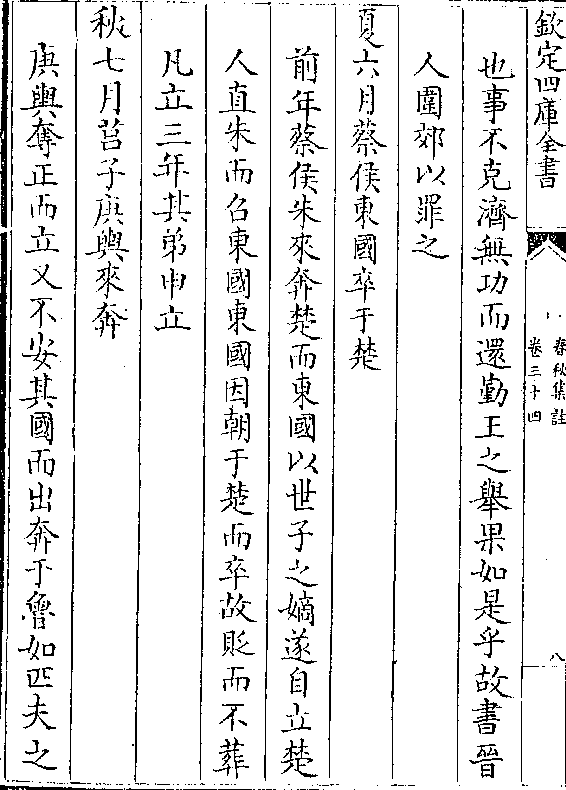 欽定四庫全書
春秋集註
卷三十四
八
也事不克濟無功而還勤王之舉果如是乎故書晉
人圍郊以罪之
夏六月蔡侯東國卒于楚
前年蔡侯朱來奔楚而東國以世子之嫡遂自立楚
人直朱而召東國東國因朝于楚而卒故貶而不葬
凡立三年其弟申立
秋七月莒子庚輿來奔
庚輿奪正而立又不安其國而出奔于魯如匹夫之